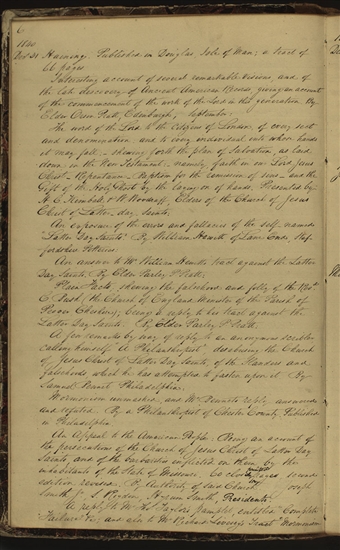 6
1840
Haining. Published in Douglas Isle of Man; a tract of
66 pages
Interesting account of several remarkable visions, and of
the late discovery of Ancient American Records giving an account
of the commencement of the work of the Lord in this generation. By
Elder Orson Pratt, Edinburgh, September
The word of the Lord to the Citizens of London, of every sect
and denomination, and to every individual into whose hands
it may fall; shewing forth the plan of Salvation, as laid
down in the New Testament, namely, faith in our Lord Jesus
Christ - Repentance - Baptism for the remission of sins - and the
Gift of the Holy Ghost by the laying on of hands. Presented by
H. C. Kimball & W Woodruff, Elders of the Church of Jesus
Christ of Latter day Saints
An exposure of the errors and fallacies of the self-named
"Latter Day Saints" By William Hewitt of Lane Ends, Staf-
fordshire Potteries
An answer to Mr William Hewitt's tract against the Latter
Day Saints, By Elder Parley P. Pratt.
Plain Facts, shewing the falsehood and folly of the Rev.
C. S. Bush, (the Church of England Minister of the Parish of
Peover Cheshire); being a reply to his tract against the
Latter Day Saints. By Elder Parley P. Pratt
A few remarks by way of reply to an anonymous scribbler
calling himself A Philanthropist; disabusing the Church
of Jesus Christ of Latter Day Saints, of the slanders and
falsehoods which he has attempted to fasten upon it By
Samuel Bennett Philadelphia.
Mormonism unmasked, and Mr Bennett's reply, answered
and refuted. By a Philanthropist of Chester County. Published
in Philadelphia
An Appeal to the American People: Being an account of the
persecutions of the Church of Jesus Christ of Latter Day
Saints, and of the barbarities inflicted on them by the
inhabitants of the State of Missouri. second
edition revised. By Authority of said Church Joseph
Smith Jr, S Rigdon, Hyrum Smith, Presidents.
A reply to Mr Tho Taylor's pamphlet entitled "Complete
Failure" &c; and also to Mr Richard Livesey's Tract "Mormonism